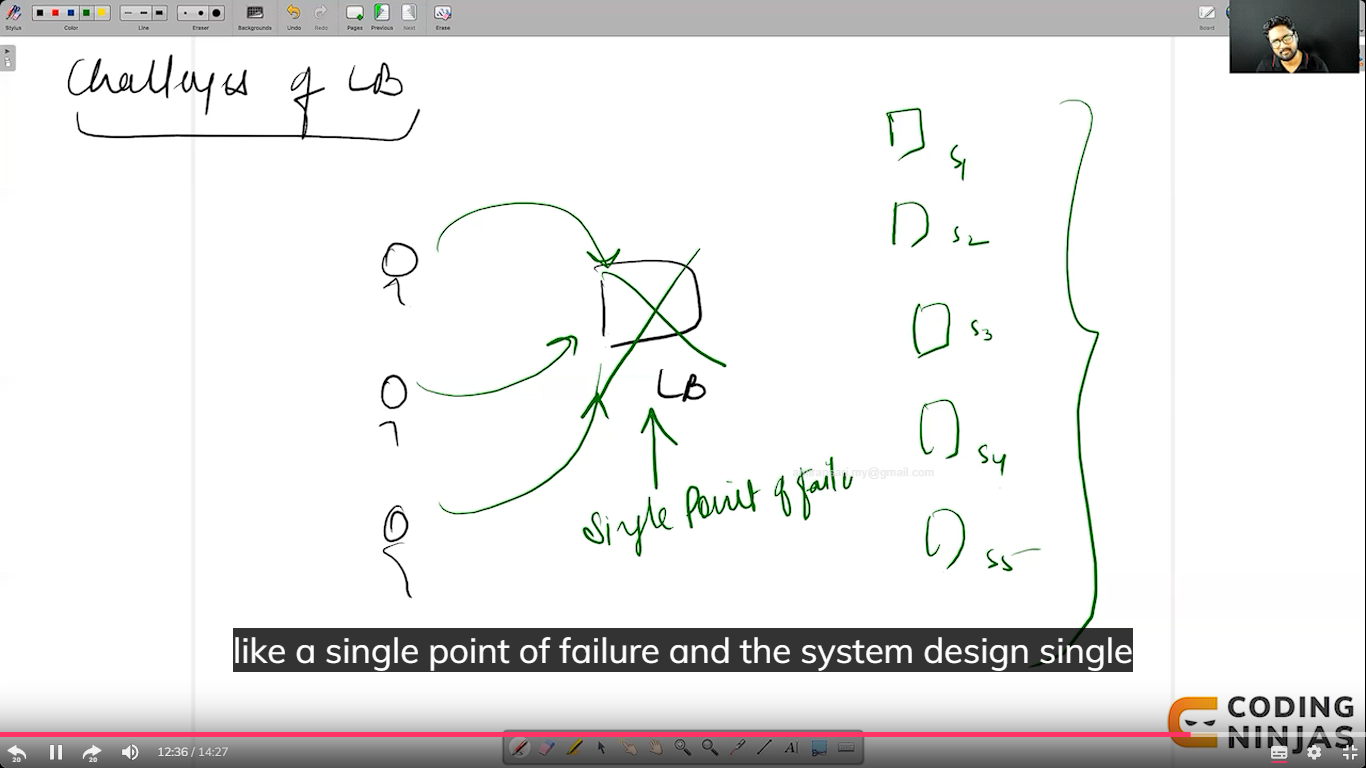 Stylus
Color
Line
Eraser
Backgrounds
Undo
Redo
Pages
Previous
Next
Erase
Board
Challenges of LB
S1
S2
S3
LB
S4
Single Point of failu
S5
like a single point of failure and the system design single
CODING
NINJAS
20
20
12:36 / 14:27